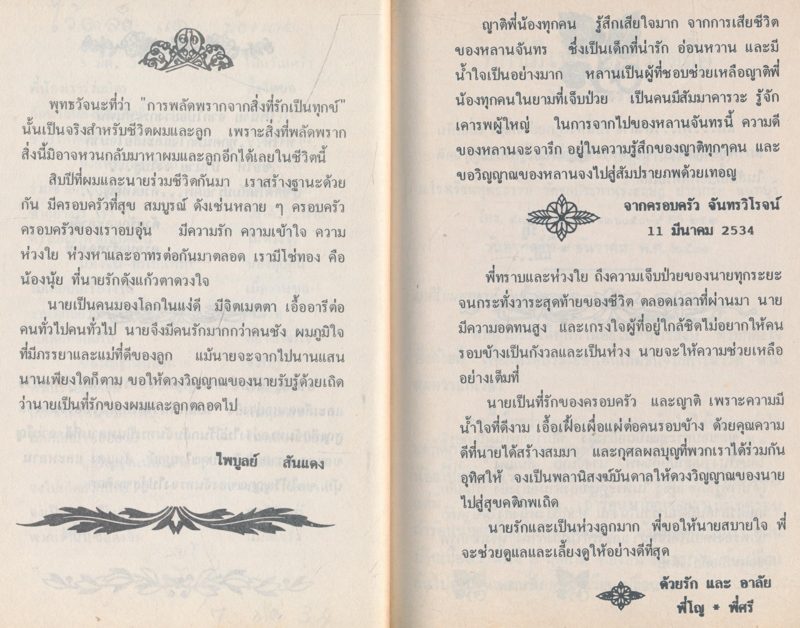 พุทธวัจนะที่ว่า "การพลัดพรากจากสิ่งที่รักเป็นทุกข์"
นั้นเป็นจริงสำหรับชีวิตผมและลูก เพราะสิ่งที่พลัดพราก
สิ่งนี้มิอาจหวนกลับมาหาผมและลูกอีกได้เลยในชีวิตนี้
สิบปีที่ผมและนายร่วมชีวิตกันมา เราสร้างฐานะด้วย
กัน มีครอบครัวที่สุข สมบูรณ์ ดังเช่นหลาย ๆ ครอบครัว
ครอบครัวของเราอบอุ่น มีความรัก ความเข้าใจ ความ
ห่วงใย ห่วงหาและอาทรต่อกันมาตลอด เรามีโซ่ทอง คือ
น้องนุ้ย ที่นายรักดังแก้วตาดวงใจ
นายเป็นคนมองโลกในแง่ดี มีจิตเมตตา เอื้ออารีต่อ
คนทั่วไปคนทั่วไป นายจึงมีคนรักมากกว่าคนชัง ผมภูมิใจ
ที่มีภรรยาและแม่ที่ดีของลูก แม้นายจะจากไปนานแสน
นานเพียงใดก็ตาม ขอให้ดวงวิญญาณของนายรับรู้ด้วยเถิด
ว่านายเป็นที่รักของผมและลูกตลอดไป
ไพบูลย์ สันแดง
ญาติพี่น้องทุกคน รู้สึกเสียใจมาก จากการเสียชีวิต
ของหลานจันทร ซึ่งเป็นเด็กที่น่ารัก อ่อนหวาน และมี
น้ำใจเป็นอย่างมาก หลานเป็นผู้ที่ชอบช่วยเหลือญาติพี่
น้องทุกคนในยามที่เจ็บป่วย เป็นคนมีสัมมาคารวะ รู้จัก
เคารพผู้ใหญ่ ในการจากไปของหลานจันทรนี้ ความดี
ของหลานจะจารึก อยู่ในความรู้สึกของญาติทุกๆคน และ
ขอวิญญาณของหลานจงไปสู่สัมปรายภพด้วยเทอญ
จากครอบครัว จันทรวิโรจน์
11 มีนาคม 2534
พี่ทราบและห่วงใย ถึงความเจ็บป่วยของนายทุกระยะ
จนกระทั่งวาระสุดท้ายของชีวิต ตลอดเวลาที่ผ่านมา นาย
มีความอดทนสูง และเกรงใจผู้ที่อยู่ใกล้ชิดไม่อยากให้คน
รอบข้างเป็นกังวลและเป็นห่วง นายจะให้ความช่วยเหลือ
อย่างเต็มที่
นายเป็นที่รักของครอบครัว และญาติ เพราะความมี
น้ำใจที่ดีงาม เอื้อเฟื้อเผื่อแผ่ต่อคนรอบข้าง ด้วยคุณความ
ดีที่นายได้สร้างสมมา และกุศลผลบุญที่พวกเราได้ร่วมกัน
อุทิศให้ จงเป็นพลานิสงฆ์บันดาลให้ดวงวิญญาณของนาย
ไปสู่สุขคติภพเถิด
นายรักและเป็นห่วงลูกมาก พี่ขอให้นายสบายใจ พี่
จะช่วยดูแลและเลี้ยงดูให้อย่างดีที่สุด
ด้วยรัก และ อาลัย
พี่โญ * พี่ศรี